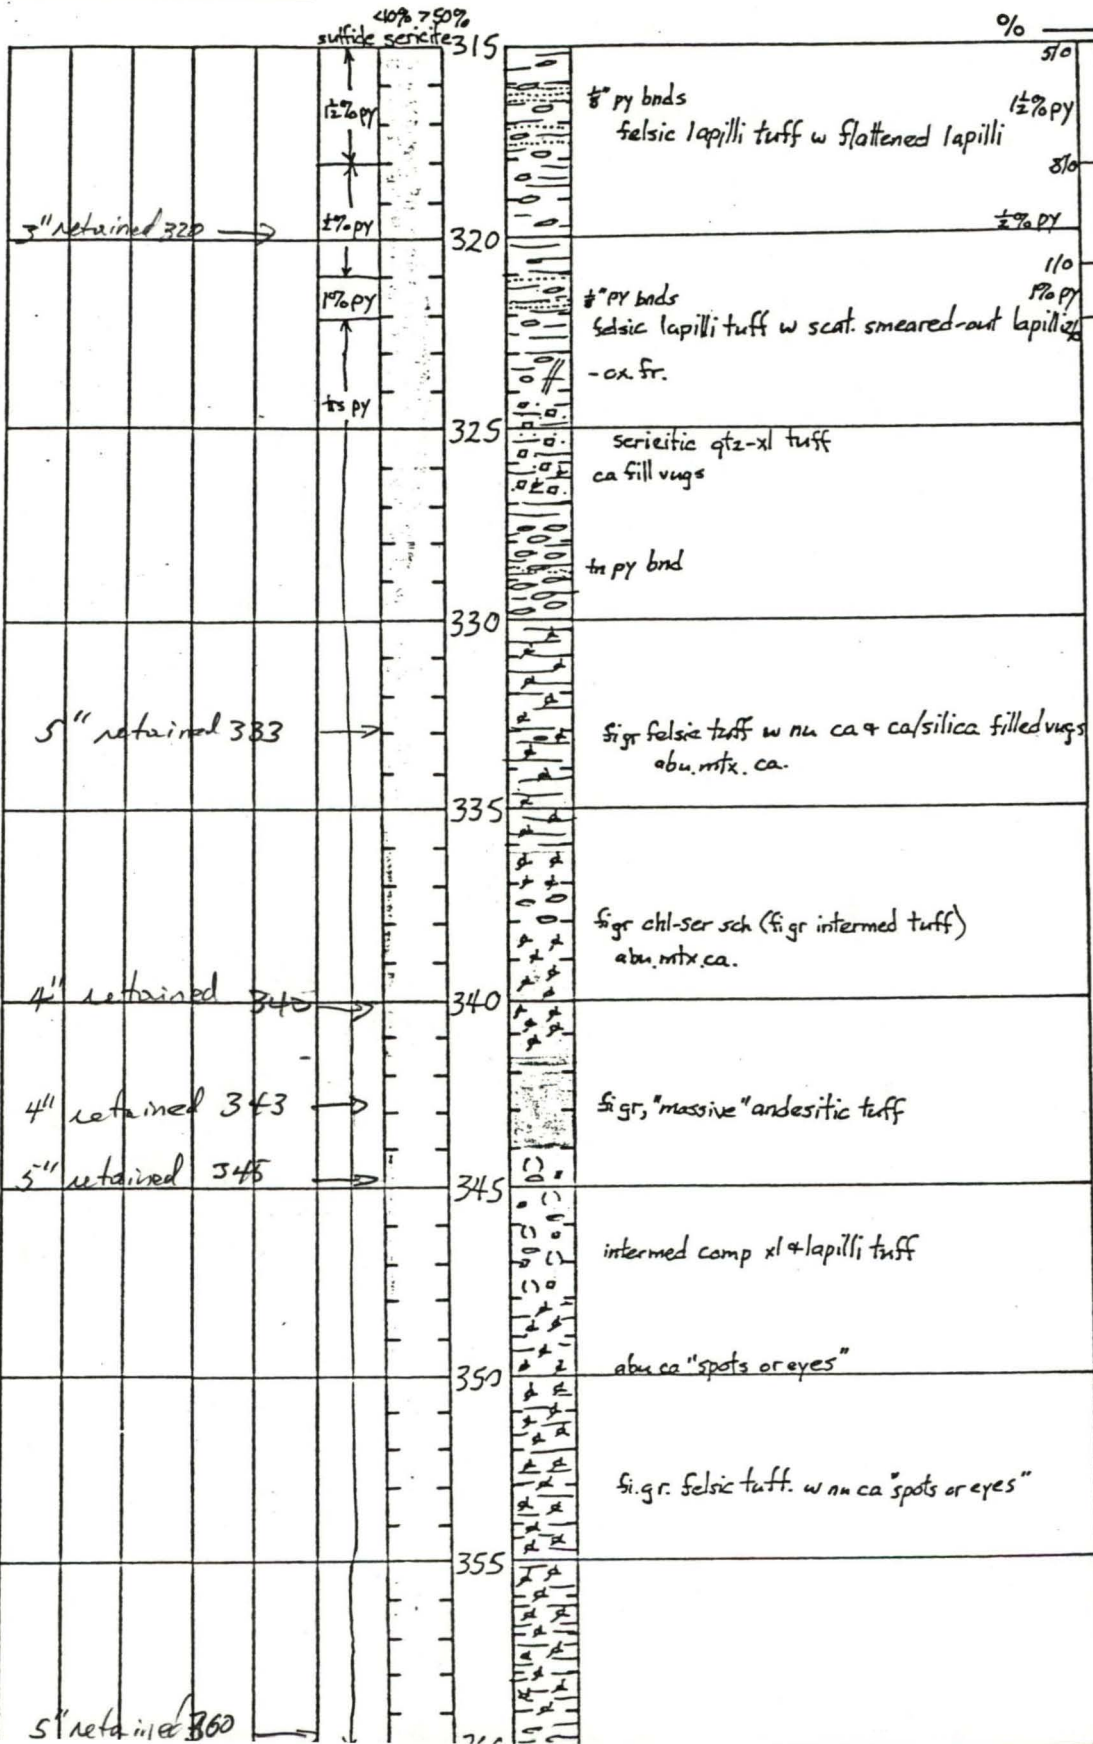 <10% >50%
sulfide sericite 315
%
5/0
1½%py
⅛" py bnds
1½%py
felsic lapilli tuff w flattened lapilli
8/0
½%py
½%py
3" retained 320
320
1/0
1%py
⅛" py bnds
1%py
felsic lapilli tuff w scat. smeared-out lapilli
- ox fr.
trs py
325
sericitic qtz-xl tuff
ca fill vugs
tn py bnd
330
5" retained 333
fi gr felsic tuff w nu ca & ca/silica filled vugs
abu. mtx. ca.
335
fi gr chl-ser sch (fi gr intermed tuff)
abu. mtx. ca.
4" retained 340
340
4" retained 343
fi gr, "massive" andesitic tuff
5" retained 345
345
intermed comp xl & lapilli tuff
abu ca "spots or eyes"
350
fi. gr. felsic tuff. w nu ca "spots or eyes"
355
5" retained 360